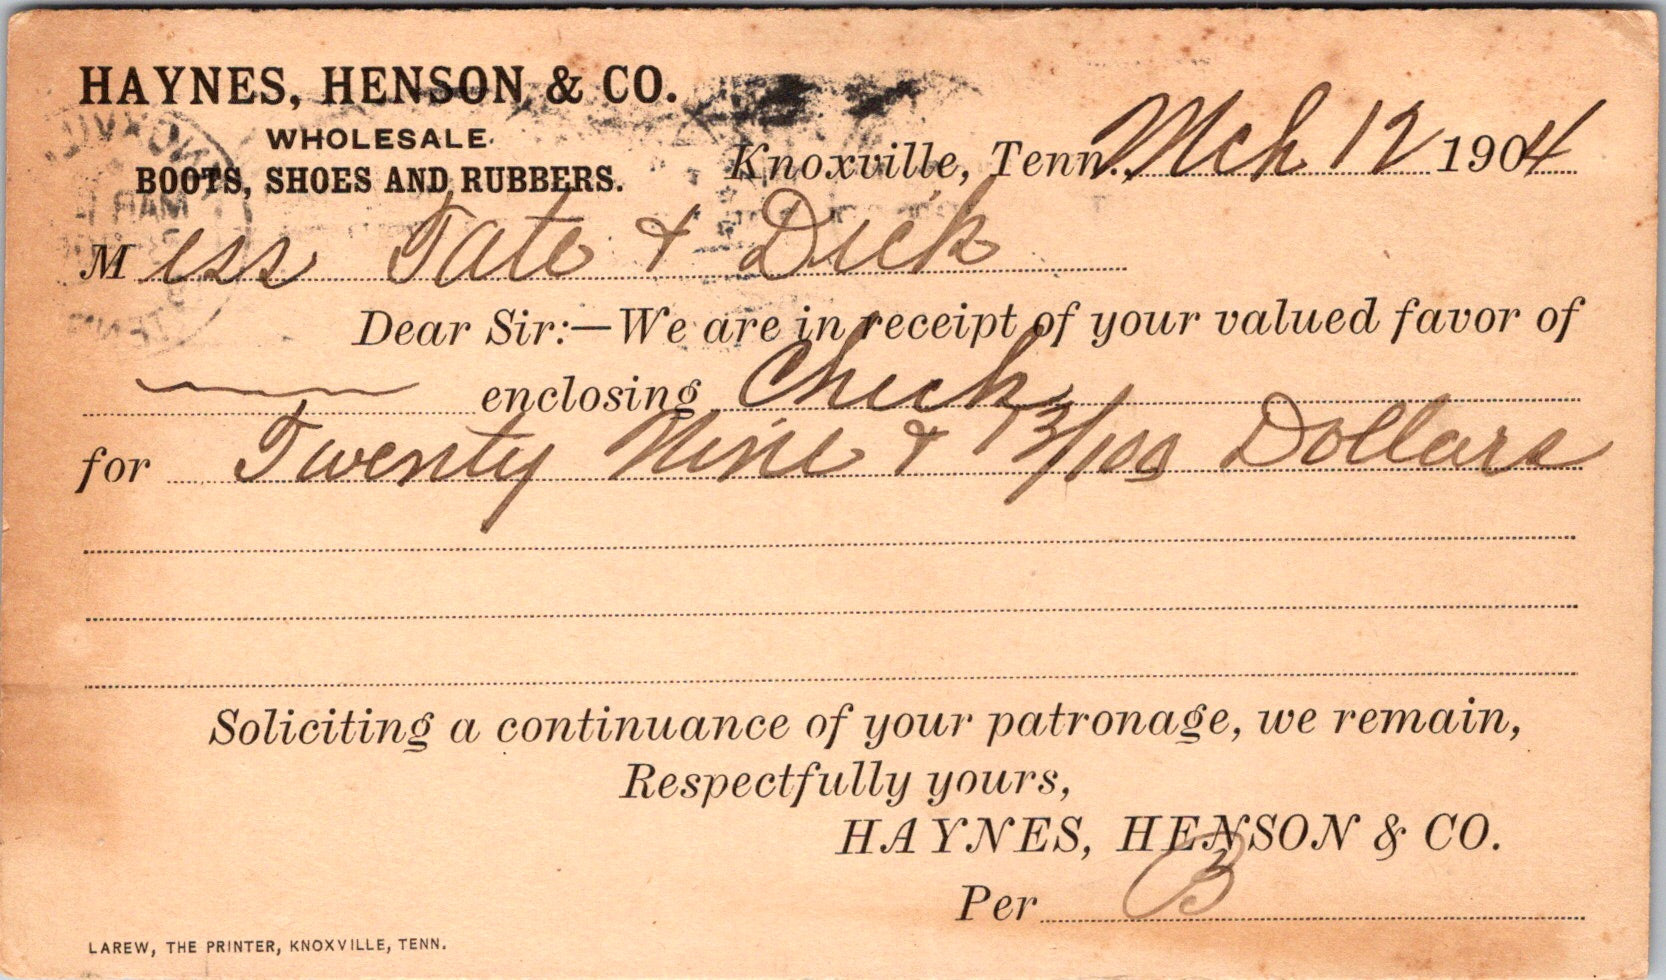 HAYNES, HENSON & CO.
WHOLESALE
BOOTS, SHOES AND RUBBERS.
Knoxville, Tenn., Mch 12 1904
Mess Tate & Dick
Dear Sir:—We are in receipt of your valued favor of
enclosing Check
for Twenty Nine & 13/100 Dollars
Soliciting a continuance of your patronage, we remain,
Respectfully yours,
HAYNES, HENSON & CO.
Per B
LAREW, THE PRINTER, KNOXVILLE, TENN.